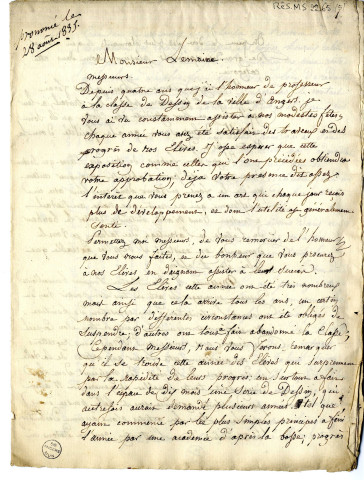 RÉS.MS 2265
prononcé le
28 août 1835.
Monsieur Lemaire
messieurs
Depuis quatre ans que j'ai l'honneur de professeur
à la classe de Dessin de la ville d'Angers, je
vous ai vu constamment assister à nos modestes fêtes,
chaque année vous avez été satisfait des travaux et des
progrès de nos Elèves. J'ose espérer que cette
exposition comme celles qui l'ont précédées obtiendra
votre approbation, déjà votre présence dit assez
l'intérêt que vous prenez à un art qui chaque jour reçoit
plus de développement, et dont l'utilité est généralement
senti.
Permettez moi messieurs, de vous remercier de l'honneur
que vous nous faites, et du bonheur que vous procurez
à nos Elèves en daignant assister à leur
Les Elèves cette année ont été très nombreux
mais ainsi que cela arrive tous les ans, un certain
nombre par différentes circonstances ont été obligés de
suspendre, d'autres ont tout à fait abandonné la Classe,
Cependant messieurs, nous vous ferons remarquer
qu'il se trouve cette année des Elèves qui surprennent
par la rapidité de leurs progrès, un certain a fait
dans l'espace de dix mois une série de Dessin, qui
autrefois aurait demandé plusieurs années
ayant commencé par les plus simples principes a fini
l'année par une académie d'après la bosse, progrès